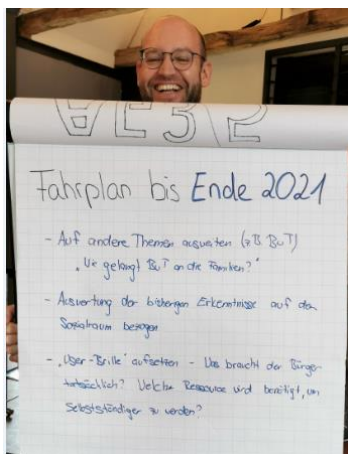 Fahrplan bis Ende 2021
- Auf andere Themen ausweiten (zB BuT)
"Wie gelangt BuT an die Familien?"
- Auswertung der bisherigen Erkenntnisse auf den
Sozialraum bezogen
- "User-Brille" aufsetzen - Was braucht der Bürger
tatsächlich? Welche Ressource wird benötigt, um
Selbstständiger zu werden?